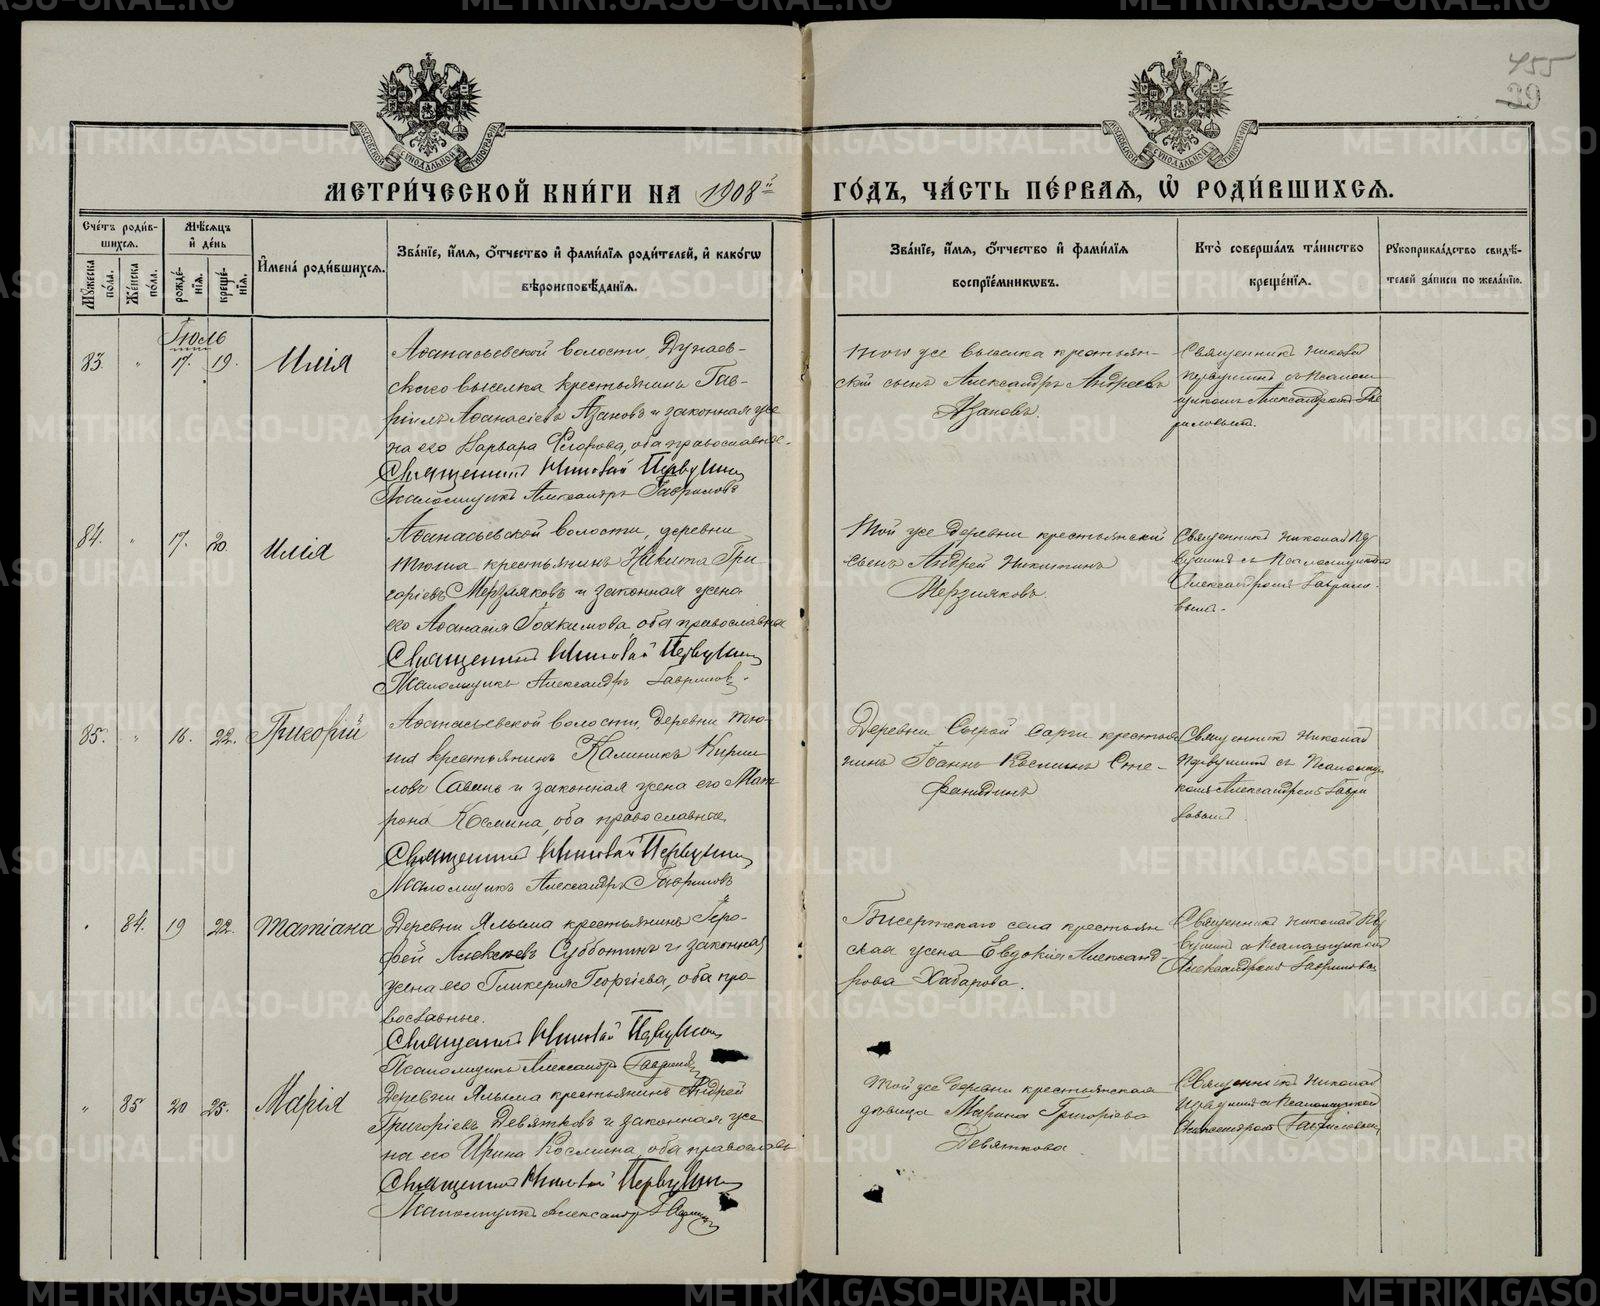 455
39
МОСКОВСКОЙ СѴНОДАЛЬНОЙ ТИПОГРАФІИ
МОСКОВСКОЙ СѴНОДАЛЬНОЙ ТИПОГРАФІИ
МЕТРИ́ЧЕСКОЙ КНИ́ГИ НА 1908й ГО́ДЪ, ЧА́СТЬ ПЕ́РВАЯ, Ѿ РОДИ́ВШИХСЯ.
Сче́тъ роди́вшихся.
Му́жеска по́ла.
Же́нска по́ла.
Мѣ́сяцъ и҆ де́нь
рожде́нїя.
креще́нїя.
И҆мена̀ роди́вшихся.
Зва́нїе, и҆́мя, ѻ҆́тчество и҆ фами́лїя роди́телей, и҆ како́гѡ вѣроисповѣ́данїя.
Зва́нїе, и҆́мя, ѻ҆́тчество и҆ фами́лїя воспрїе́мникѡвъ.
Кто̀ соверша́лъ та́инство креще́нїя.
Рукоприкла́дство свидѣ́телей за́писи по жела́нїю.
Іюль
83. " 17. 19. Илія
Афанасьевской волости, Дунаев-
скаго выселка крестьянинъ Гав-
ріилъ Афанасіевъ Азановъ и законная же-
на его Варвара Феодорова, оба православные.
Священникъ Николай Первушинъ
Псаломщикъ Александръ Гавриловъ
того же выселка крестьян-
скій сынъ Александръ Андреевъ
Азановъ.
Священникъ Николай
Первушинъ съ псалом-
щикомъ Александромъ Гав-
риловымъ.
84. " 17. 20. Илія
Афанасьевской волости, деревни
Тюша крестьянинъ Никита Гри-
горіевъ Мерзляковъ и законная жена
его Афанасія Іоакимова, оба православные
Священникъ Николай Первушинъ
Псаломщикъ Александръ Гавриловъ.
Той же деревни крестьянскій
сынъ Андрей Никитинъ
Мерзляковъ.
Священникъ Николай Пер-
вушинъ съ псаломщикомъ
Александромъ Гаврило-
вымъ.
85. " 16. 22. Григорій
Афанасьевской волости, деревни Тю-
ша крестьянинъ Каллиникъ Кирил-
ловъ и законная жена его Мат-
рона Космина, оба православные
Священникъ Николай Первушинъ
Псаломщикъ Александръ Гавриловъ
Деревни Сырой крестья-
нинъ Іоаннъ Косминъ
Священникъ Николай
Первушинъ съ псаломщи-
комъ Александромъ Гаври-
ловымъ
" 84. 19 22. Татіана
Деревни Ялыма крестьянинъ Іеро-
фей Алексѣевъ Субботинъ и законная
жена его Гликерія Георгіева, оба пра-
вославные.
Священникъ Николай Первушинъ
Псаломщикъ Александръ Гавриловъ
Бисертскаго села крестьян-
ская жена Евдокія Александ-
рова Хабарова.
Священникъ Николай Пер-
вушинъ съ псаломщикомъ
Александромъ Гавриловымъ
" 85 20 25. Марія
Деревни Ялыма крестьянинъ Андрей
Григоріевъ Девятковъ и законная же-
на его Ирина Космина, оба православн.
Священникъ Николай Первушинъ
Псаломщикъ Александръ Гавриловъ
Той же деревни крестьянская
дѣвица Марина Григоріева
Девяткова.
Священникъ Николай
Первушинъ съ псаломщикомъ
Александромъ Гавриловымъ
METRIKI.GASO-URAL.RU